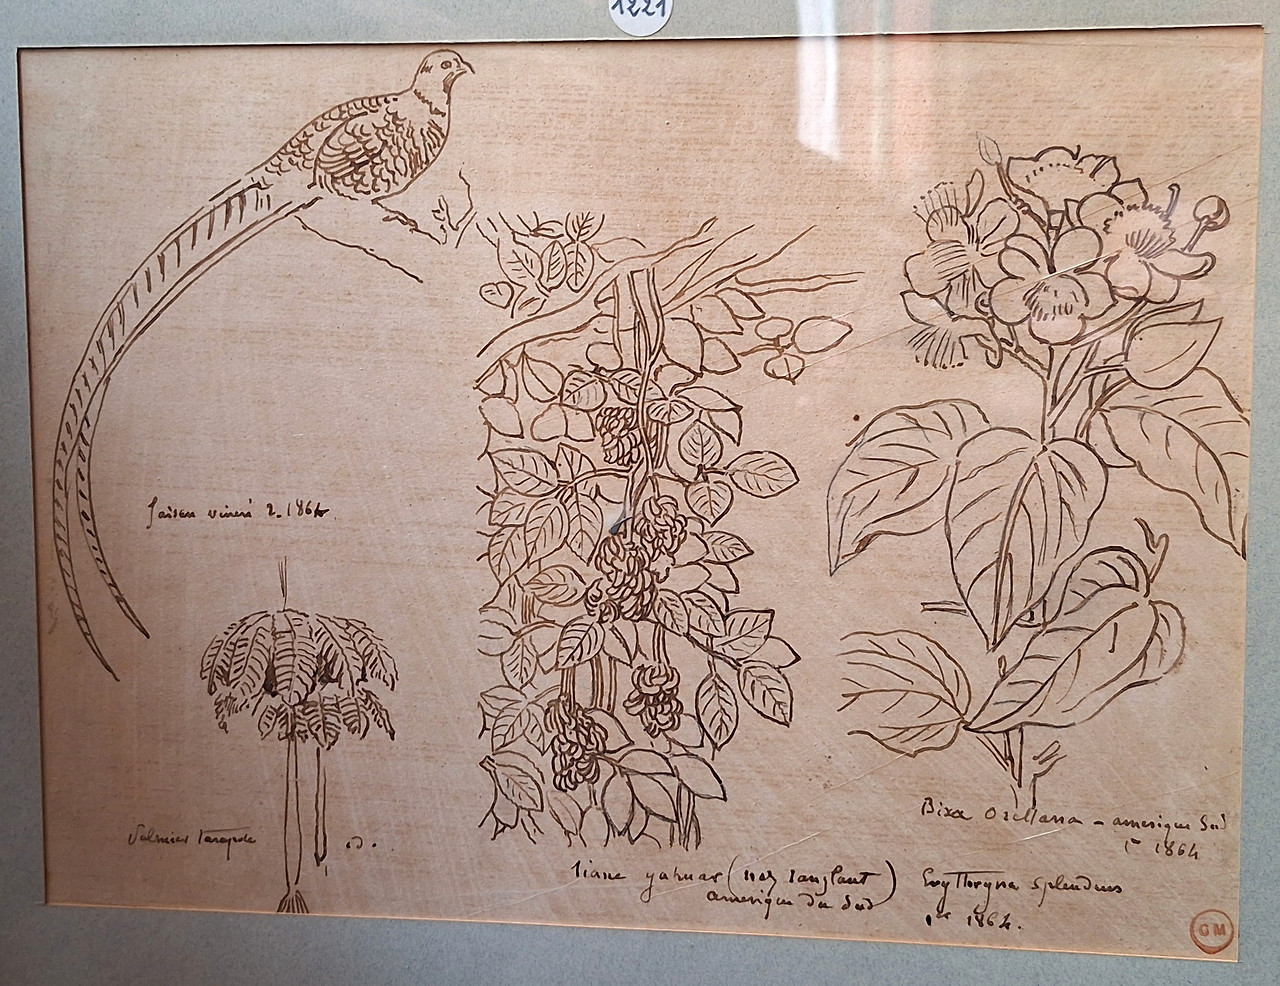 1221
faisan vénéré 2. 1864.
Palmier
id.
Bixa Orellana - amérique Sud
1er 1864
liane yahuar (nez sanglant)
amérique du Sud
Erythryna splendens
1er 1864.
GM